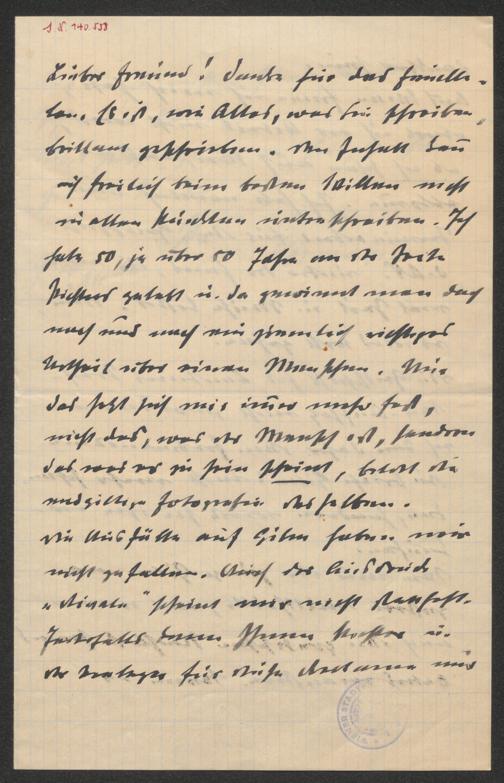 J. N. 140.538
Lieber Freund! Danke für das Feuille-
ton. Es ist, wie Alles, was Sie schreiben,
brillant geschrieben. Den Inhalt kann
ich freilich beim besten Willen nicht
in allen Stücken unterschreiben. Ich
habe 50, ja über 50 Jahre an der Seite
gelebt u. da gewinnt man doch
nach und nach ein ziemlich richtiges
Urtheil über einen Menschen. Nur
das setzt sich mir immer mehr fest,
nicht das, was der Mensch ist, sondern
das was er zu sein scheint, bildet die
endgiltige Fotografie desselben.
Die Ausfälle auf Gilm haben mir
nicht gefallen. Auch der Ausdruck
"Rivale" scheint mir nicht statthaft.
Jedenfalls kann Ihnen u.
der Verleger für diese Reclame nur
WIENER STADT